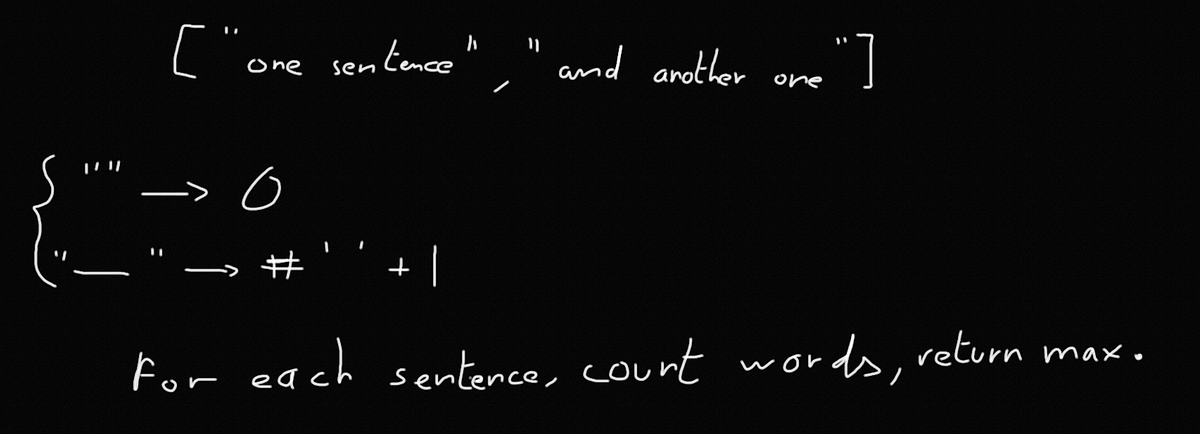 ["one sentence", "and another one"]
"" → 0
"__" → # ' ' + 1
For each sentence, count words, return max.